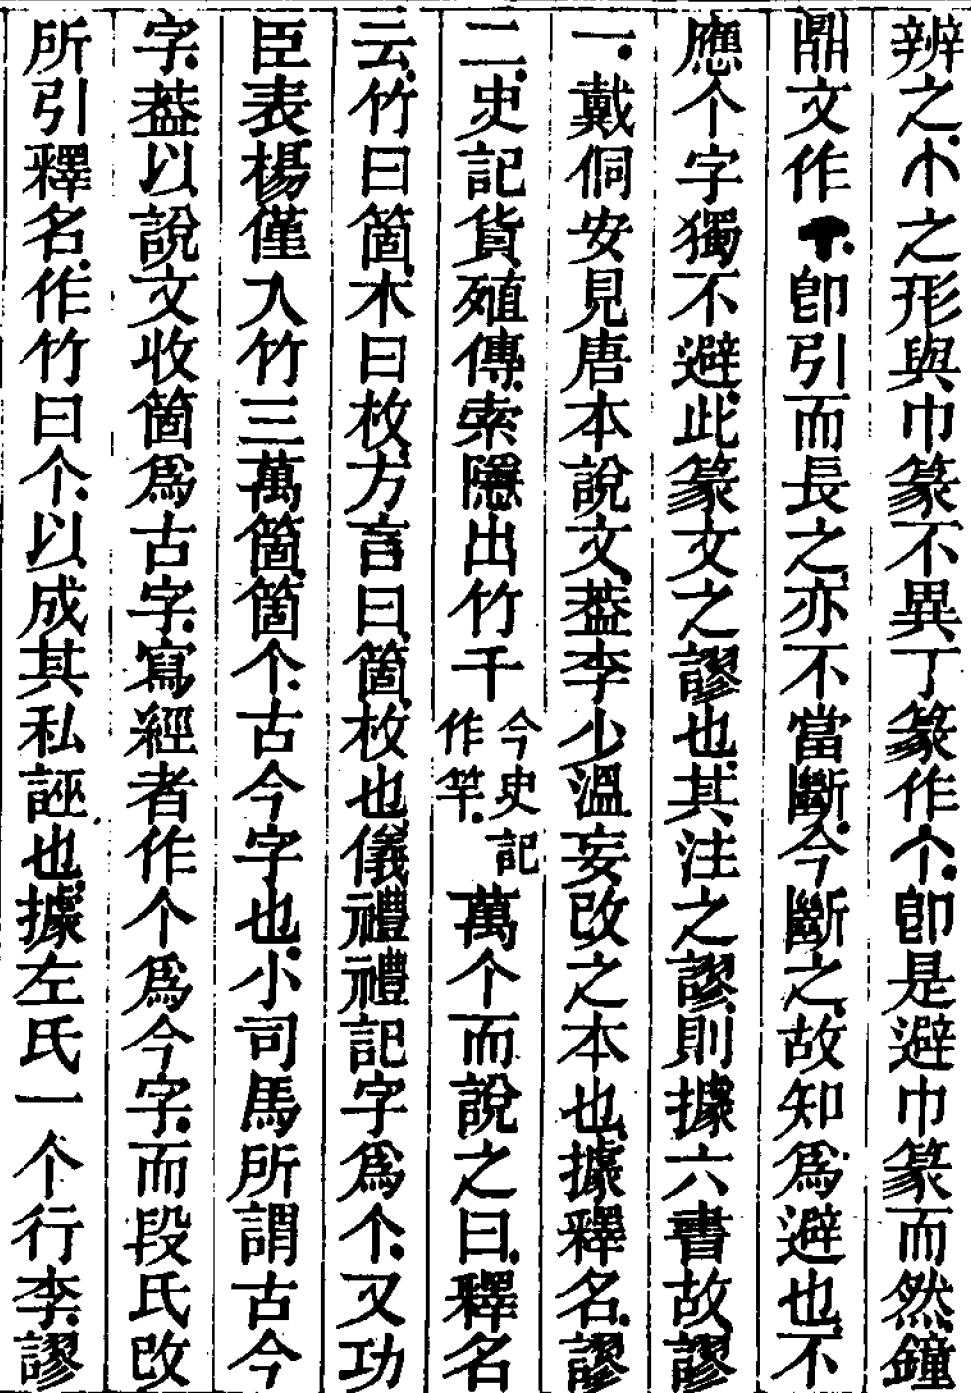 辨之.个之形與巾篆不異丁篆作个.卽是避巾篆而然.鐘
鼎文作.卽引而長之.亦不當斷.今斷之.故知爲避也.不
應个字獨不避.此篆文之謬也.其注之謬.則據六書故謬
一.戴侗安見唐本說文.葢李少溫妄改之本也.據釋名.謬
二.史記貨殖傳.索隱出竹千今史記作竿.萬个而說之曰.釋名
云.竹曰箇.木曰枚.方言曰.箇.枚也.儀禮禮記字爲个.又功
臣表楊僅入竹三萬箇.箇个.古今字也.小司馬所謂古今
字.葢以說文收箇爲古字.寫經者作个爲今字.而段氏改
所引釋名.作竹曰个.以成其私.誣也.據左氏一个行李.謬